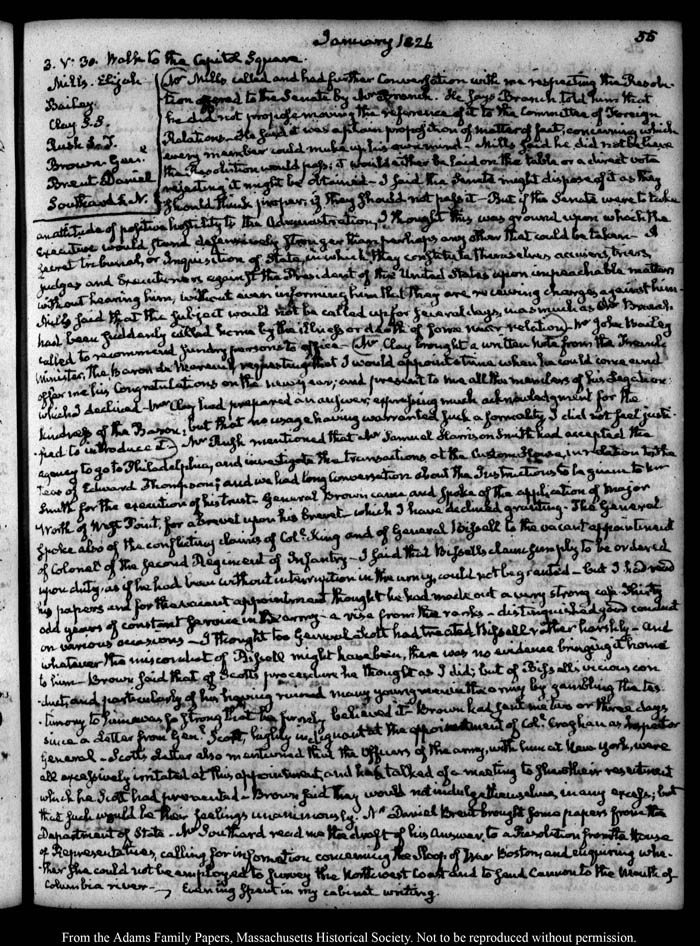 January 1826
55
3. V: 30. Walk to the Capitol Square.
Mills. Elijah
Bailey
Clay. S.S.
Rush S.T.
Brown. Genl.
Brent Daniel
Southard S. N.
Mr Mills called and had further Conversation with me respecting the Resolu-
tion offered to the Senate by Mr Branch. He says Branch told him that
he did not propose moving the reference of it to the Committee of Foreign
Relations. He said it was a plain proposition of matter of fact; concerning which
every member could make up his own mind. Mills said he did not believe
the Resolution would pass; it would either be laid on the table or a direct vote
rejecting it might be obtained— I said the Senate might dispose of it as they
should think proper; if they should not pass it— But if the Senate were to take
an attitude of positive hostility to the Administration, I thought this was ground upon which the
Executive would stand defensively stronger than perhaps any other that could be taken— A
secret tribunal, or Inquisition of State, in which they constitute themselves accusers, triers,
judges and Executioners against the President of the United States upon impeachable matters
without hearing him, without even informing him that they are receiving charges against him.
Mills said that the subject would not be called up for several days, inasmuch as Mr Branch
had been suddenly called home by the illness or death of some near relation. Mr John Bailey
called to recommend sundry persons to office— Mr. Clay brought a written note from the French
Minister, The Baron de Mareuil, requesting that I would appoint a time when he could come and
offer me his Congratulations on the new year, and present to me all the members of his Legation
which I declined— Mr Clay had prepared an answer, expressing much acknowledgment for the
kindness of the Baron; but that no usage having warranted such a formality I did not feel justi-
fied to introduce it. Mr Rush mentioned that Mr Samuel Harrison Smith had accepted the
agency to go to Philadelphia, and investigate the transactions at the Custom House, in relation to the
Teas of Edward Thompson; and we had long Conversation about the Instructions to be given to Mr
Smith for the execution of his trust. General Brown came and spoke of the application of Major
Worth of West Point, for a brevet upon his brevet— which I have declined granting. The General
spoke also of the conflicting claims of Coll. King and of General Bissell to the vacant appointment
of Colonel of the second Regiment of Infantry— I said that Bissells claim simply to be ordered
upon duty, as if he had been without interruption in the army, could not be granted— but I had read
his papers and for the vacant appointment thought he had made out a very strong case. Thirty
odd years of constant service in the army— a rise from the ranks— distinguished good conduct
on various occasions— I thought too General Scott had treated Bissell rather harshly— And
whatever the misconduct of Bissell might have been, there was no evidence bringing it home
to him— Brown said that of Scotts procedure he thought as I did; but of Bissells vicious con-
duct, and particularly of his having ruined many young men in the army by gambling the tes-
timony to him was so strong that he firmly believed it— Brown had sent me two or three days
since a Letter from Genl. Scott, highly indignant at the appointment of Coll. Croghan as Inspector
General— Scotts Letter also mentioned that the Officers of the army, with him at New York, were
all excessively irritated at this appointment, and had talked of a meeting to shew their resentment
which he Scott had prevented— Brown said they would not indulge themselves in any excess; but
that such would be their feelings unanimously. Mr Daniel Brent brought some papers from the
Department of State— Mr Southard read me the draft of his Answer, to a Resolution from the House
of Representatives, calling for information concerning the Sloop of War Boston, and enquiring whe-
ther she could not be employed to survey the Northwest Coast and to send Cannon to the Mouth of
Columbia river— Evening spent in my cabinet writing.
From the Adams Family Papers, Massachusetts Historical Society. Not to be reproduced without permission.